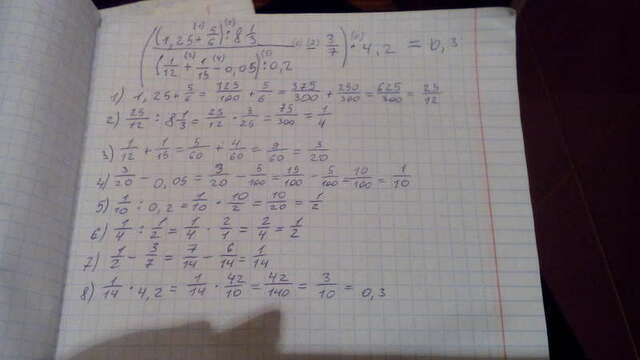 ( ((1,25 + 5/6) : 8 1/3) / ((1/12 + 1/15 - 0,05) : 0,2) - 3/7 ) · 4,2 = 0,3
1) 1,25 + 5/6 = 125/100 + 5/6 = 375/300 + 250/300 = 625/300 = 25/12
2) 25/12 : 8 1/3 = 25/12 · 3/25 = 75/300 = 1/4
3) 1/12 + 1/15 = 5/60 + 4/60 = 9/60 = 3/20
4) 3/20 - 0,05 = 3/20 - 5/100 = 15/100 - 5/100 = 10/100 = 1/10
5) 1/10 : 0,2 = 1/10 · 10/2 = 10/20 = 1/2
6) 1/4 : 1/2 = 1/4 · 2/1 = 2/4 = 1/2
7) 1/2 - 3/7 = 7/14 - 6/14 = 1/14
8) 1/14 · 4,2 = 1/14 · 42/10 = 42/140 = 3/10 = 0,3